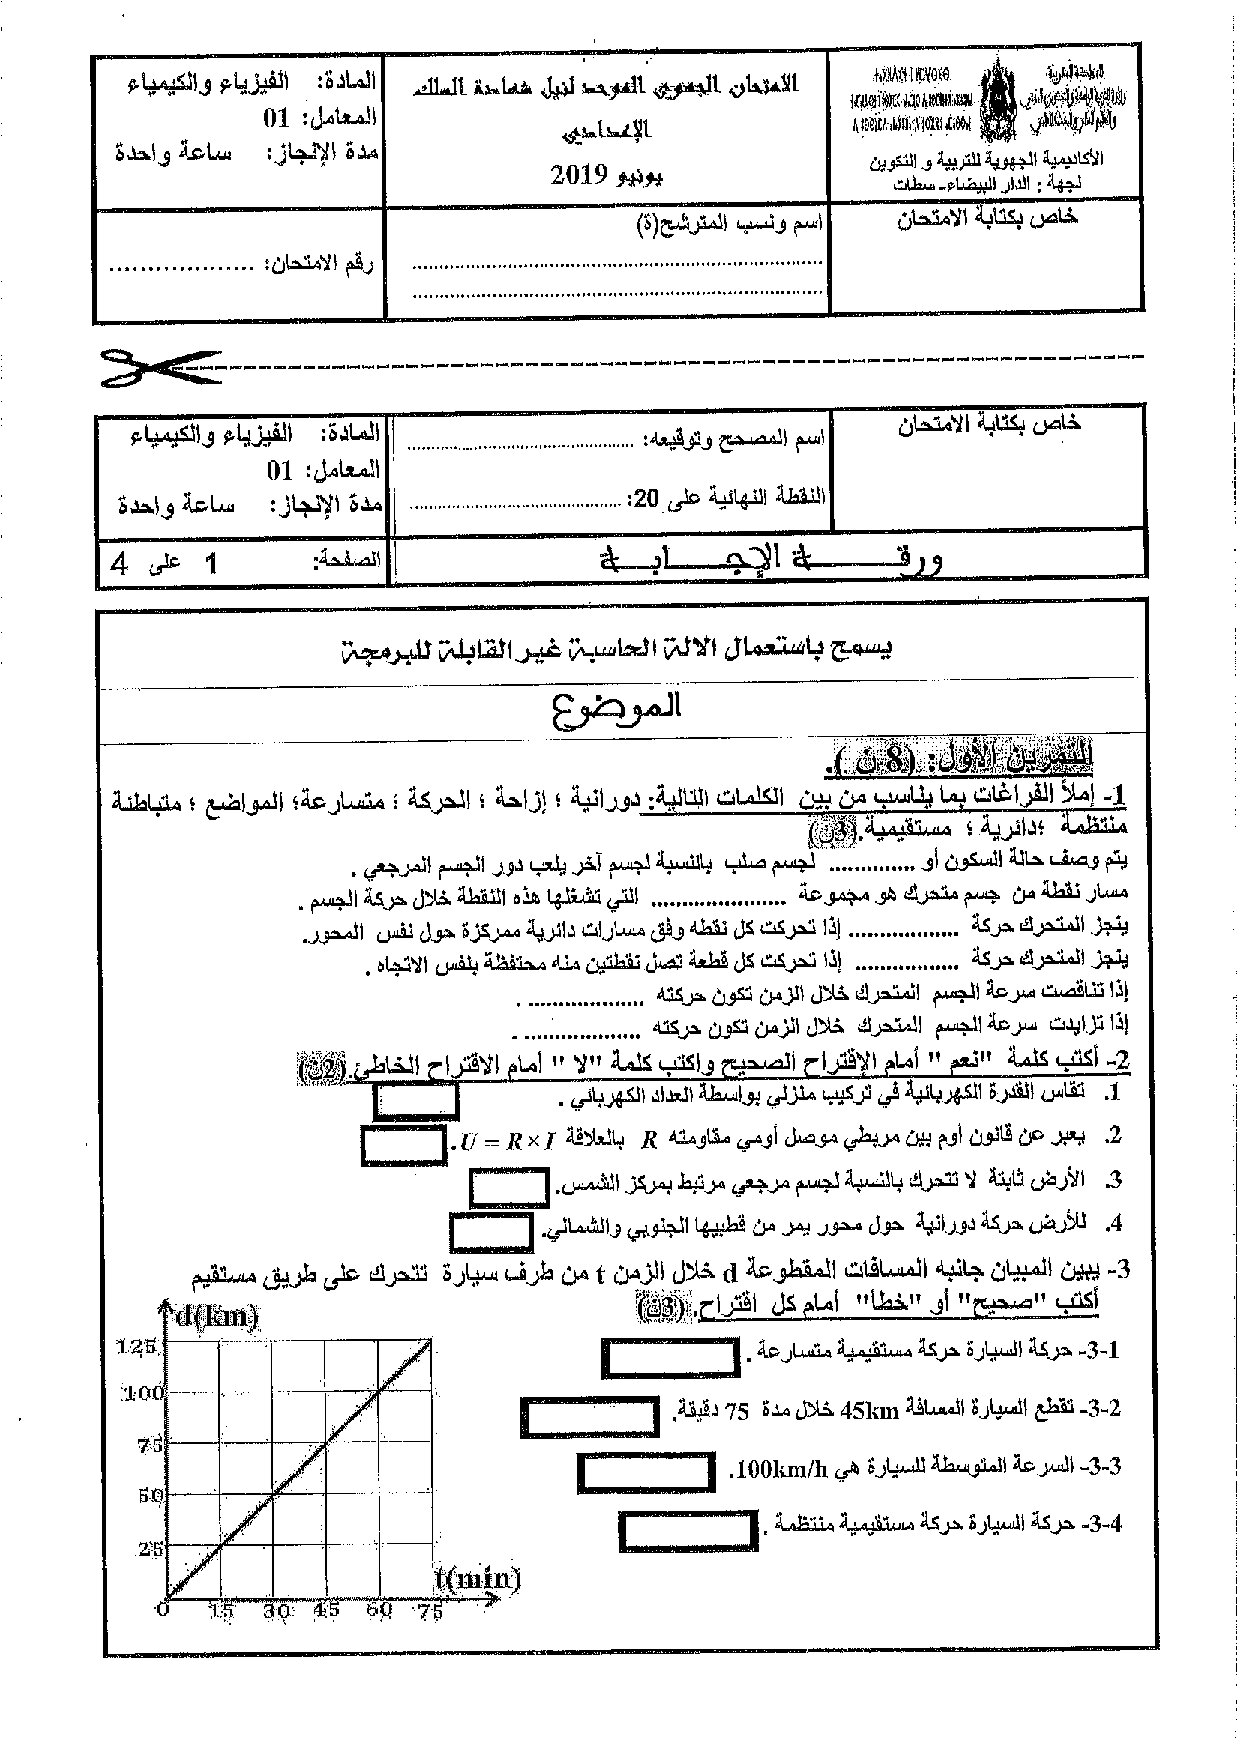 المملكة المغربية
الأكاديمية الجهوية للتربية و التكوين
لجهة : الدار البيضاء- سطات
الامتحان الجهوي الموحد لنيل شهادة السلك
الإعدادي
يونيو 2019
المادة: الفيزياء والكيمياء
المعامل: 01
مدة الإنجاز: ساعة واحدة
خاص بكتابة الامتحان
اسم ونسب المترشح(ة)
......................................................
......................................................
رقم الامتحان: ...................
خاص بكتابة الامتحان
اسم المصحح وتوقيعه: ........................................
النقطة النهائية على 20: ........................................
المادة: الفيزياء والكيمياء
المعامل: 01
مدة الإنجاز: ساعة واحدة
ورقـــة الإجـــابـــة
الصفحة: 1 على 4
يسمح باستعمال الالة الحاسبة غير القابلة للبرمجة
الموضوع
التمرين الأول: (8 ن ).
1- إملأ الفراغات بما يناسب من بين الكلمات التالية: دورانية ؛ إزاحة ؛ الحركة ؛ متسارعة؛ المواضع ؛ متباطئة
منتظمة ؛دائرية ؛ مستقيمية.(3ن)
يتم وصف حالة السكون أو .............. لجسم صلب بالنسبة لجسم آخر يلعب دور الجسم المرجعي .
مسار نقطة من جسم متحرك هو مجموعة ...................... التي تشغلها هذه النقطة خلال حركة الجسم .
ينجز المتحرك حركة .................. إذا تحركت كل نقطه وفق مسارات دائرية ممركزة حول نفس المحور.
ينجز المتحرك حركة ................. إذا تحركت كل قطعة تصل نقطتين منه محتفظة بنفس الاتجاه .
إذا تناقصت سرعة الجسم المتحرك خلال الزمن تكون حركته ................... .
إذا تزايدت سرعة الجسم المتحرك خلال الزمن تكون حركته ................... .
2- أكتب كلمة "نعم " أمام الإقتراح الصحيح واكتب كلمة "لا " أمام الاقتراح الخاطئ.(2ن)
1. تقاس القدرة الكهربائية في تركيب منزلي بواسطة العداد الكهربائي .
2. يعبر عن قانون أوم بين مربطي موصل أومي مقاومته R بالعلاقة U = R × I .
3. الأرض ثابتة لا تتحرك بالنسبة لجسم مرجعي مرتبط بمركز الشمس.
4. للأرض حركة دورانية حول محور يمر من قطبيها الجنوبي والشمالي.
3- يبين المبيان جانبه المسافات المقطوعة d خلال الزمن t من طرف سيارة تتحرك على طريق مستقيم
أكتب "صحيح" أو "خطأ" أمام كل اقتراح.(3ن)
3-1- حركة السيارة حركة مستقيمية متسارعة .
3-2- تقطع السيارة المسافة 45km خلال مدة 75 دقيقة.
3-3- السرعة المتوسطة للسيارة هي 100km/h.
3-4- حركة السيارة حركة مستقيمية منتظمة .
d(km)
125
100
75
50
25
t(min)
0 15 30 45 60 75